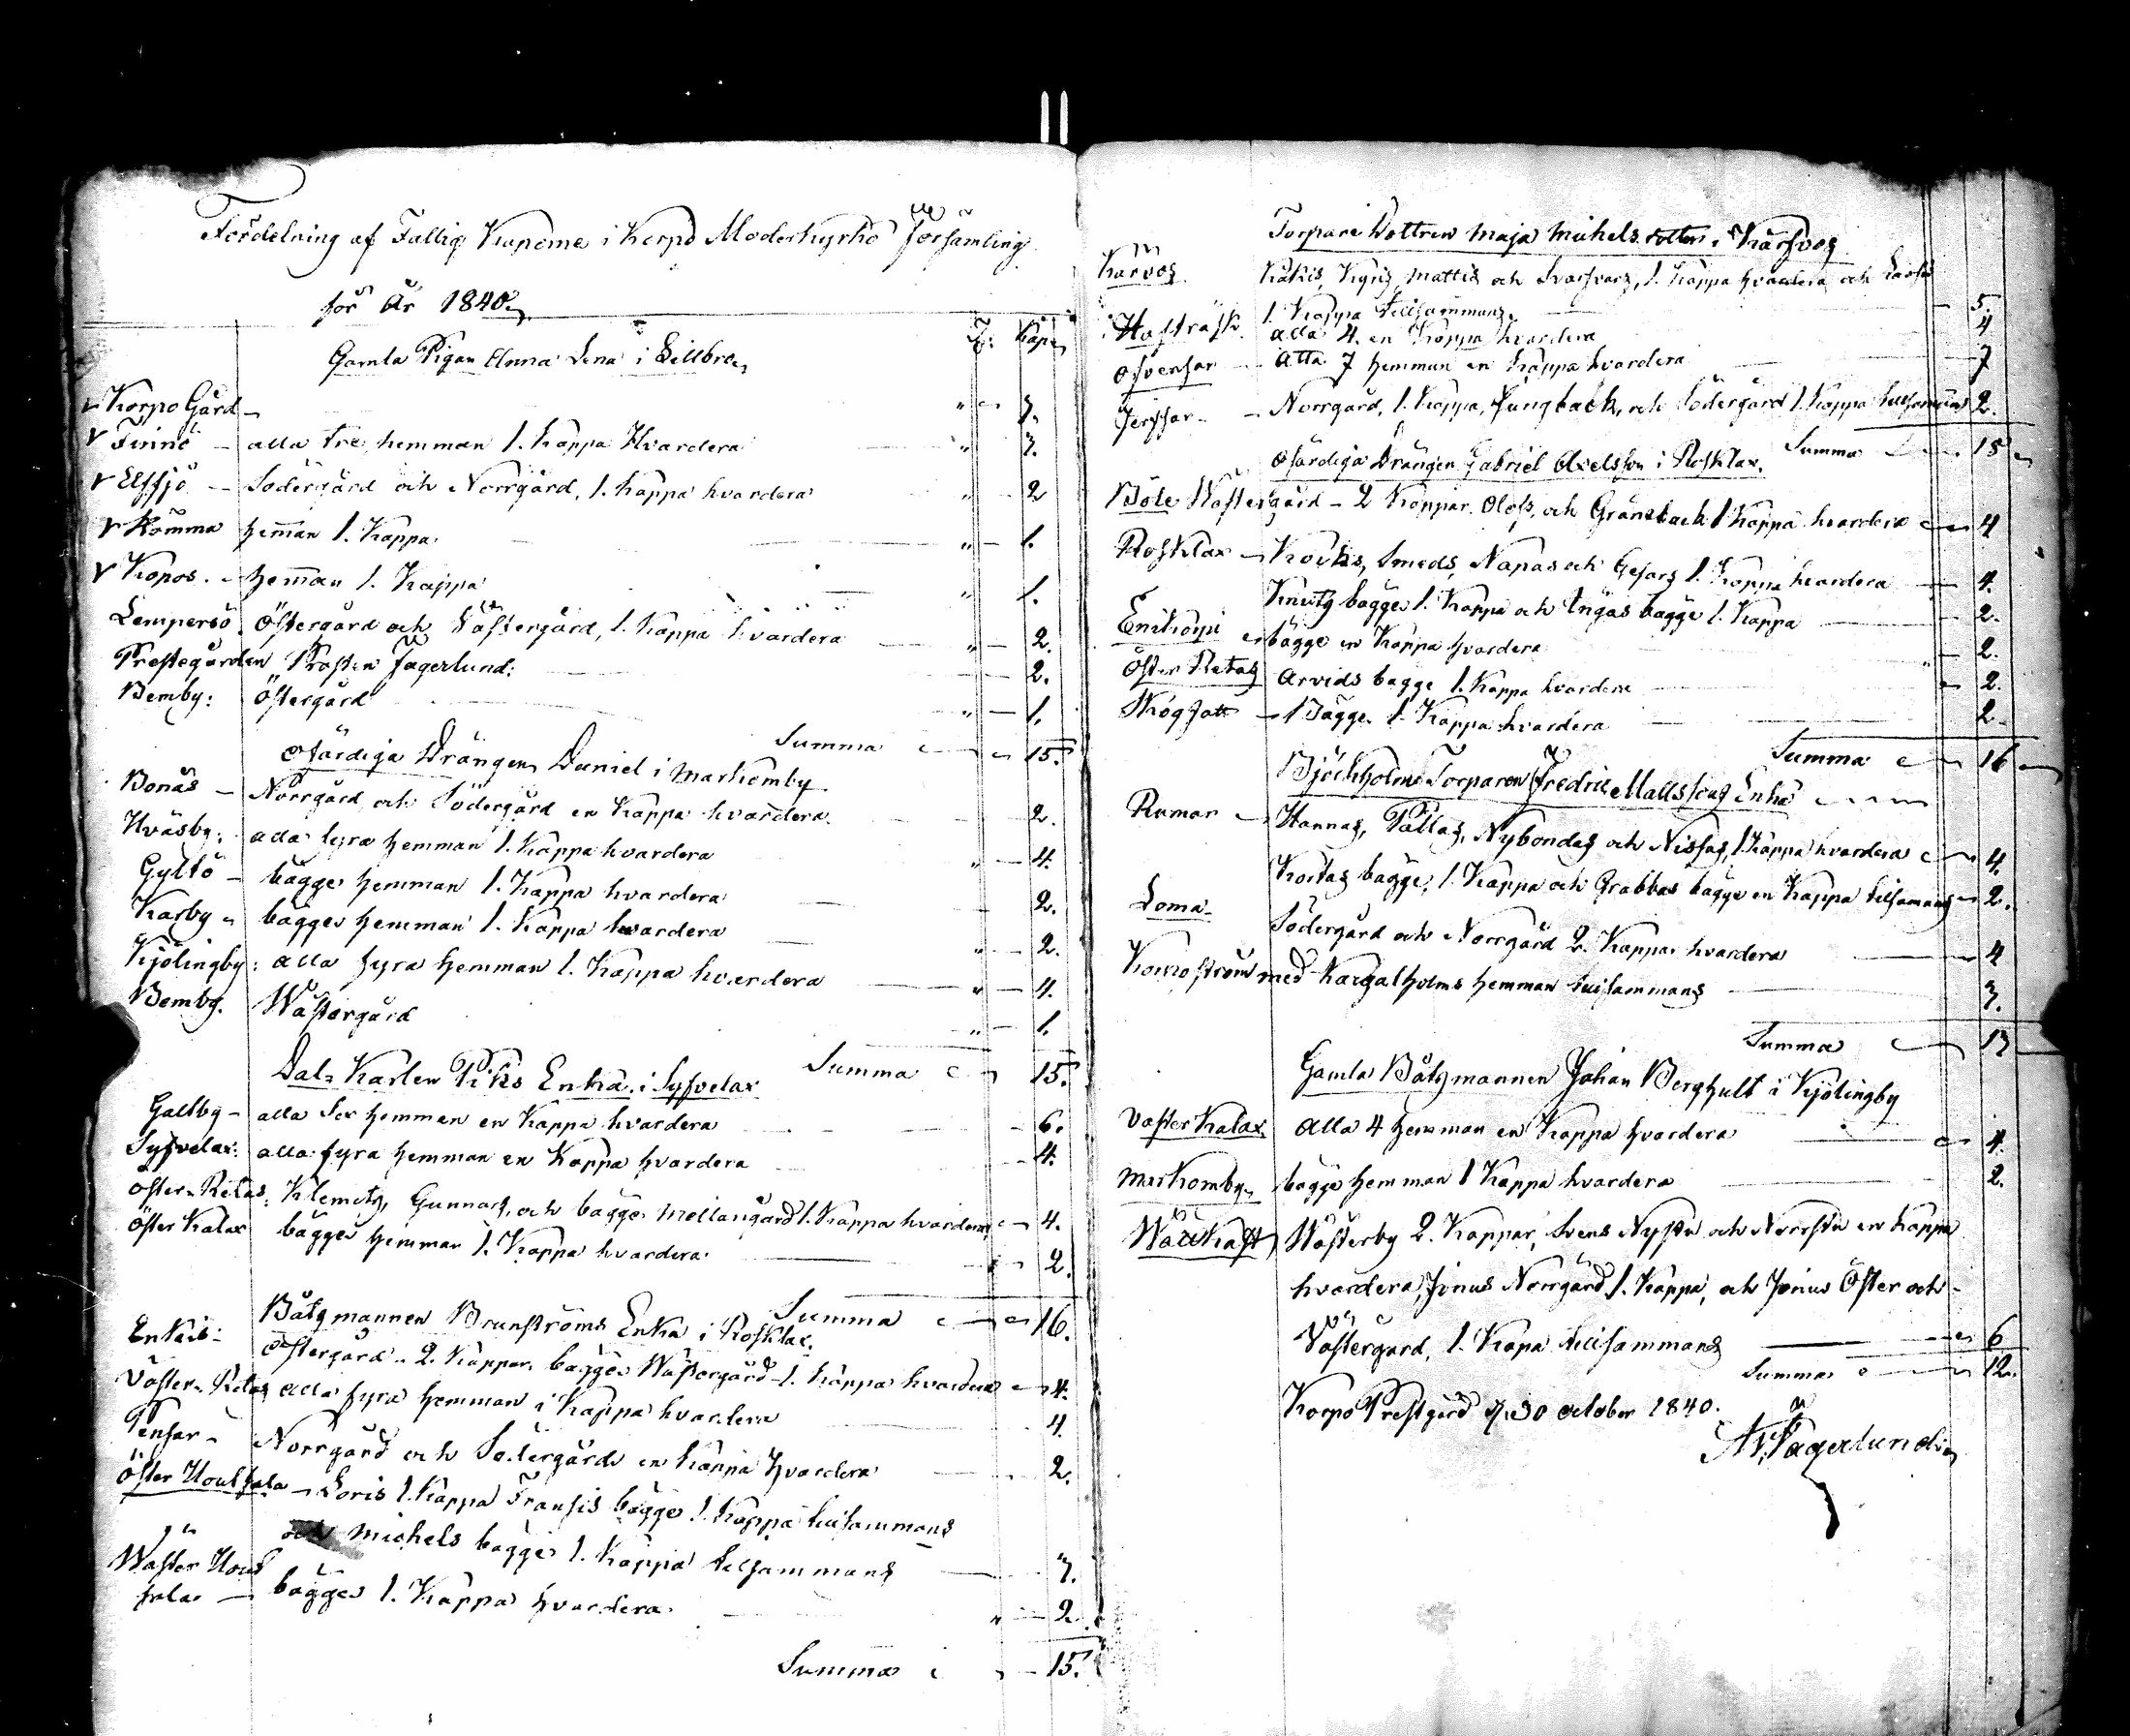 Fördelning af Fattig Kaporne i Korpo Moderkyrko Församling
för År 1840.
T: Kap:
Gamla Pigan Anna Lena i
Korpo Gård - 3.
Finnö - alla tre hemman 1. Kappa Hvardera " 3.
Elfsjö - Södergård och Norrgård, 1. kappa hvardera " 2
Komma hemman 1. Kappa " 1.
Kopos. - hemman 1. Kappa " 1.
Lempersö. Östergård och Västergård, 1. Kappa hvardera " 2.
Prestegården Prosten Fagerlund: 2.
Bemby: Östergård " 1.
Summa 15.
Ofärdiga Drängen Daniel i Markomby
Bonäs - Norrgård och Södergård en Kappa hvardera 2.
Hväsby: alla fyra hemman 1. Kappa hvardera " 4.
Gyltö - bägge hemman 1. Kappa hvardera 2.
Karby - bägge hemman 1. Kappa hvardera " 2.
Kjölingby: alla fyra hemman 1. Kappa hvardera " 4.
Bemby. Wästergård " 1.
Summa 15.
Dal-Karlen Enka i Syfvelax
Galtby - alla Sex hemman en Kappa hvardera 6.
Syfvelax: alla fyra hemman en Kappa hvardera 4.
Öster-Retas: Klemets, Gunnars, och bägge Mellangård 1. Kappa hvardera 4.
Öster Kalax bägge hemman 1. Kappa hvardera 2.
Summa 16.
Båtsmannen Brunströms Enka i Rosklax.
Enkis: Östergård - 2. Kappar bägge Wästergård - 1. Kappa hvardera 4.
Väster-Retas alla fyra hemman 1 Kappa hvardera 4.
Pensar - Norrgård och Södergård en Kappa hvardera 2.
Öster Houtskala - Loris 1. Kappa Fransis bägge 1. Kappa tillsammans
och Michels bägge 1. Kappa tillsammans 3.
Wäster Hout
skala - bägge 1. Kappa hvardera " 2.
Summa 15.
Torpare Dottren Maja Michels dotter i Kärfvos
Kärvos Mattis och 1. Kappa hvardera och
1. Kappa tillsammans 5.
alla 4. en Kappa hvardera 4
Ofvensar - Alla 7 hemman en kappa hvardera 7
Jersar - Norrgård, 1. Kappa, Ljungback, och Södergård 1. Kappa tillsammans 2.
Summa 18
Ofärdiga Drängen Gabriel Axelsson i Rosklax.
Böle Wästergård - 2 Kappar. Olofs, och Gränsback 1 Kappa hvardera 4
Rosklax - Kocks, Smeds, Napas och 1. Kappa hvardera 4.
Knuts bägge 1. Kappa och Ingas bägge 1. Kappa 2.
bägge en Kappa hvardera 2.
Öster Retas Arvids bagge 1. Kappa hvardera 2.
Bägge 1. Kappa hvardera 2.
Summa 16
Björkholms Torparen Fredric Mattssons Enka
Rumar - Hannas, Pällas, Nybondas och Nissas, 1. Kappa hvardera 4.
bägge, 1. Kappa och Grabbas bägge en Kappa tillsamans 2.
Loma - Södergård och Norrgård 2. Kappar hvardera 4
Korpoström med Kargalholms hemman tillsammans 3.
Summa 13
Gamla Båtsmannen Johan Berghult i Kjölingby
Väster Kalax Alla 4 hemman en Kappa hvardera 4.
Markomby - bägge hemman 1 Kappa hvardera 2.
Wattkast Wästerby 2. Kappar, Svens Nystu och Norrstu en kappa
hvardera, Jonus Norrgård 1. Kappa, och Jonus Öster och
Västergård, 1. Kapa tillsammans 6
Summa 12.
Korpo Prestgård d. 30 October 1840.
Fagerlund